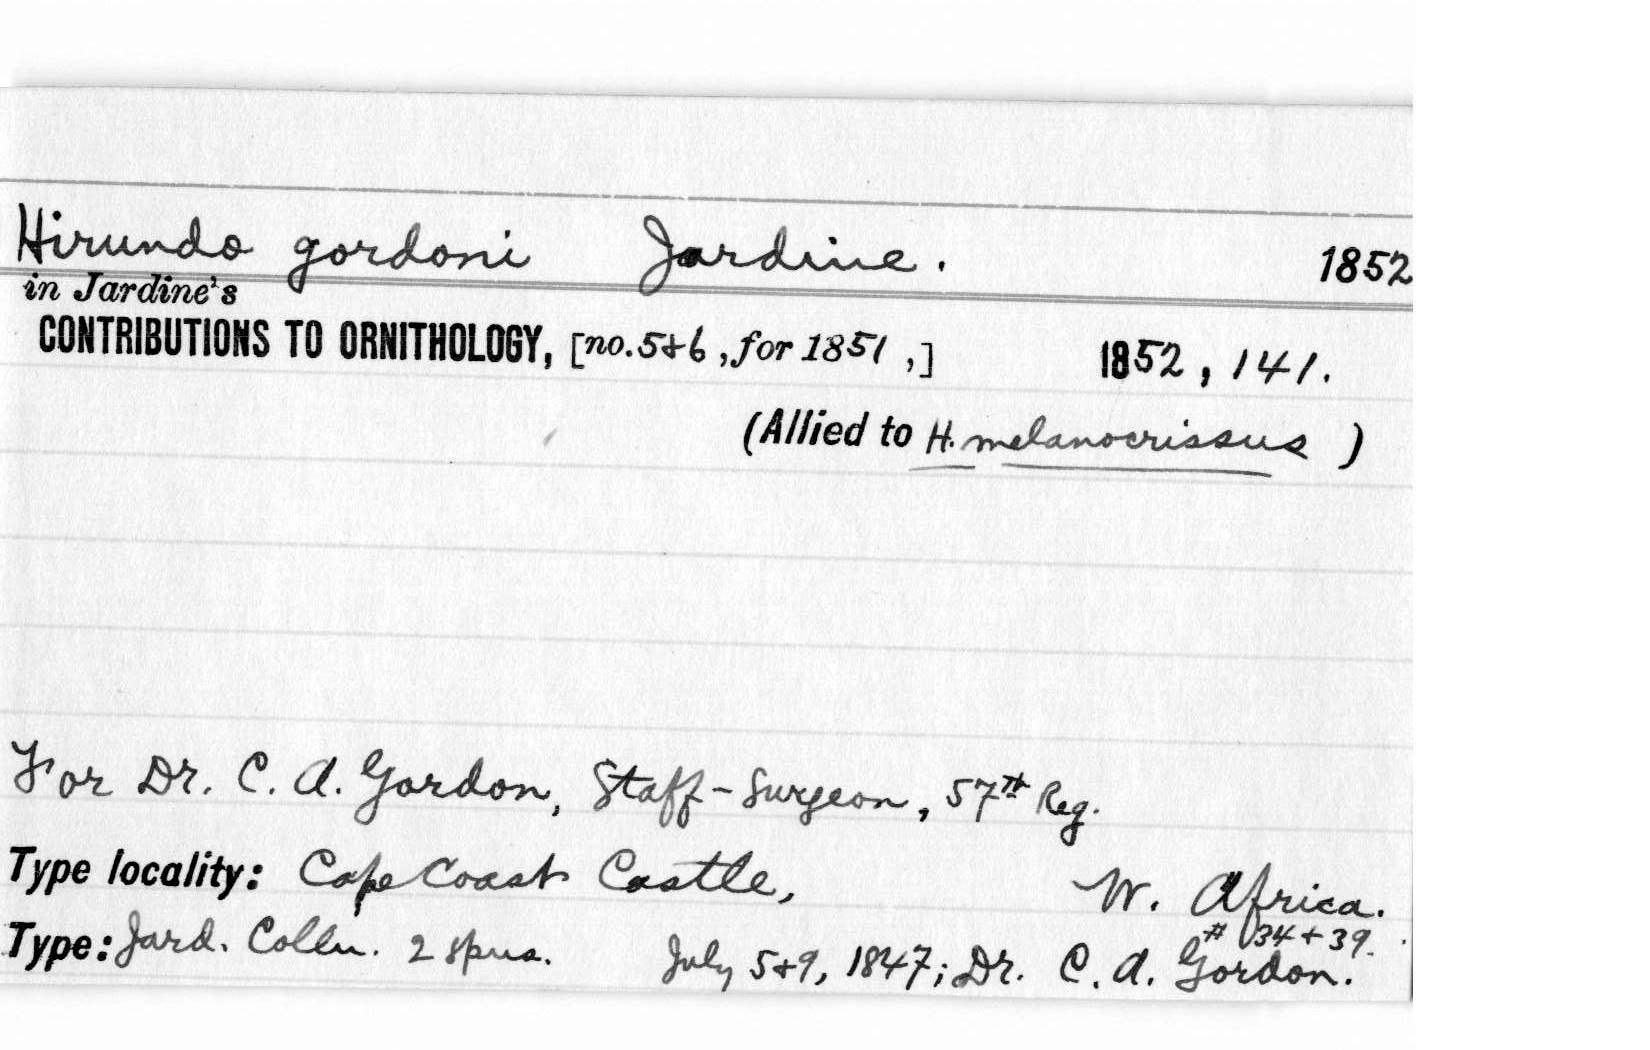 Hirundo gordoni Jardine. 1852
in Jardine's
CONTRIBUTIONS TO ORNITHOLOGY, [no. 5+6, for 1851,] 1852, 141.
(Allied to H. melanocrissus)
For Dr. C. A. Gordon, Staff-Surgeon, 57th Reg.
Type locality: Cape Coast Castle, W. Africa.
# 34 + 39.
Type: Jard. Colln. 2 spns. July 5+9, 1847; Dr. C. A. Gordon.